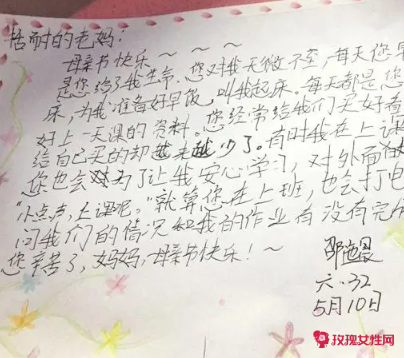 的老妈：
母亲节快乐～～～
是您给了我生命、您对我无微不至，每天您早
床，为我准备好早饭，叫我起床。每天都是您
好上一天课的资料。您经常给我们买好看
给自己买的却越来越少了。有时我在上课
您也会为了让我安心学习，对外面
“小点声，上课呢。”就算您在上班，也会打电
问我们的情况和我的作业有没有完
您辛苦了，妈妈，母亲节快乐！～
六·32
5月10日
玫瑰女性网